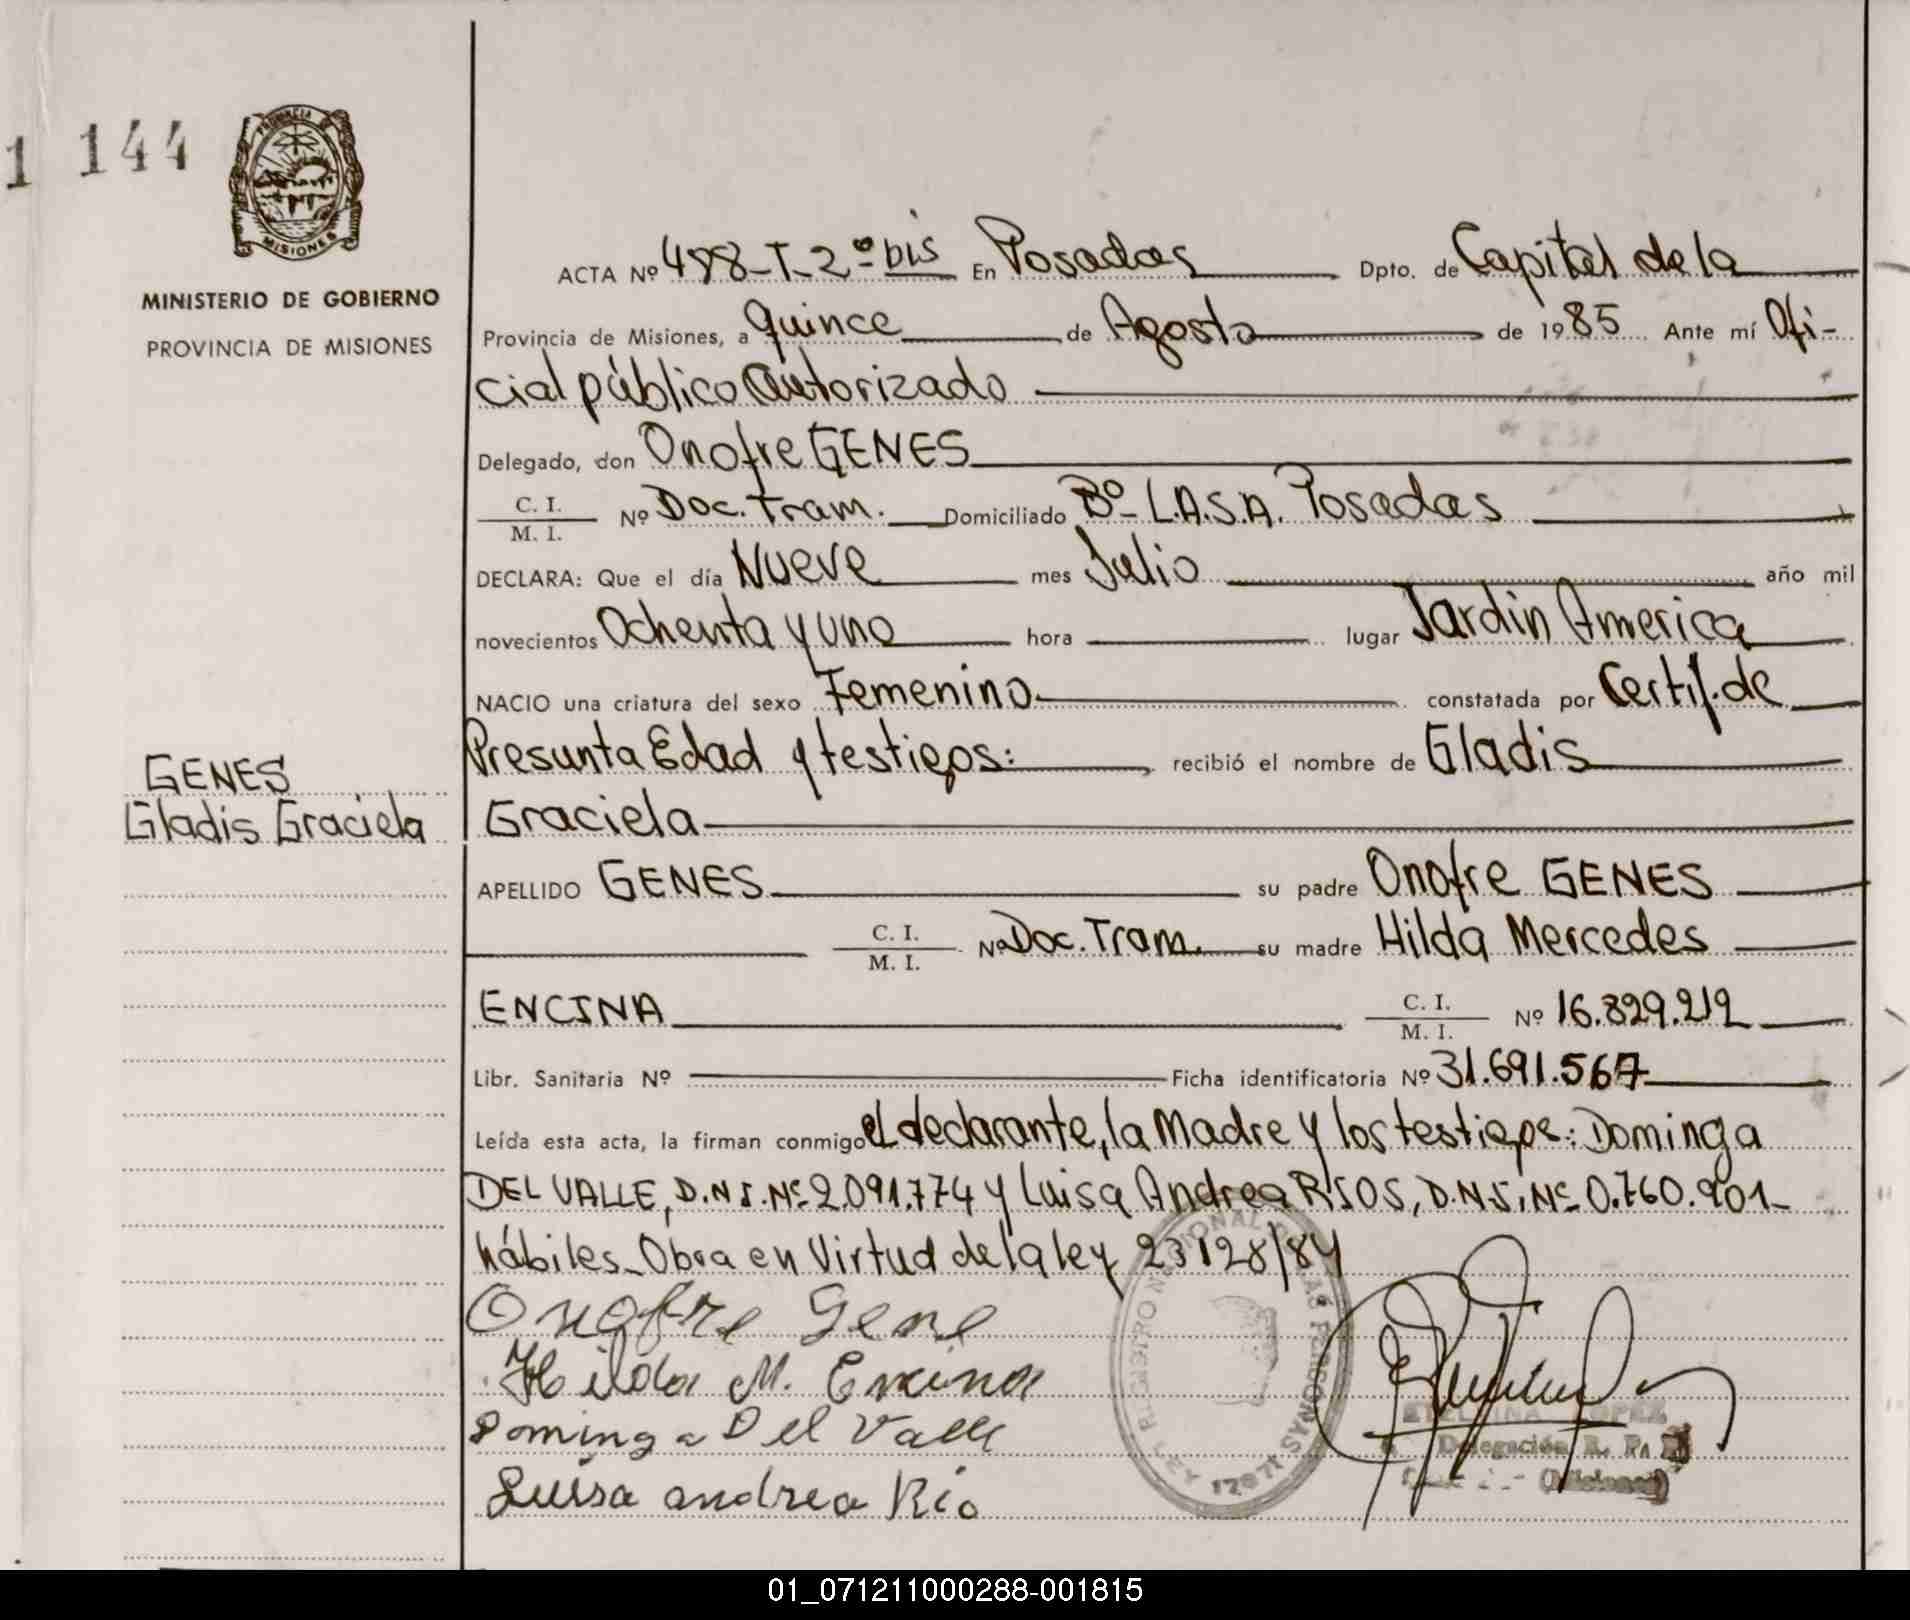 1 144
PROVINCIA DE
MISIONES
MINISTERIO DE GOBIERNO
PROVINCIA DE MISIONES
ACTA Nº 498-T-2º bis En Posadas Dpto. de Capital de la
Provincia de Misiones, a quince de Agosto de 1985 Ante mí Ofi-
cial público Autorizado
Delegado, don Onofre GENES
C. I.
M. I. Nº Doc. Tram. Domiciliado Bº L.A.S.A. Posadas
DECLARA: Que el día Nueve mes Julio año mil
novecientos Ochenta y uno hora lugar Jardin America
NACIO una criatura del sexo Femenino constatada por Certif. de
Presunta Edad y testigos: recibió el nombre de Gladis
Graciela
GENES
Gladis Graciela
APELLIDO GENES su padre Onofre GENES
C. I.
M. I. Nº Doc. Tram. su madre Hilda Mercedes
ENCINA C. I.
M. I. Nº 16.829.212
Libr. Sanitaria Nº Ficha identificatoria Nº 31.691.567
Leída esta acta, la firman conmigo el declarante, la Madre y los testigos: Dominga
DEL VALLE, D.N.I. Nº 2.091.774 y Luisa Andrea RIOS, D.N.I. Nº 0.760.901-
hábiles-Obra en Virtud de la ley 23128/84
Onofre Gene
Hilda M. Encina
Dominga Del Valle
Luisa andrea Rio
REGISTRO NACIONAL DE LAS PERSONAS
LEY 17671
LOPEZ
Delegación R. P.
(Misiones)
01_071211000288-001815